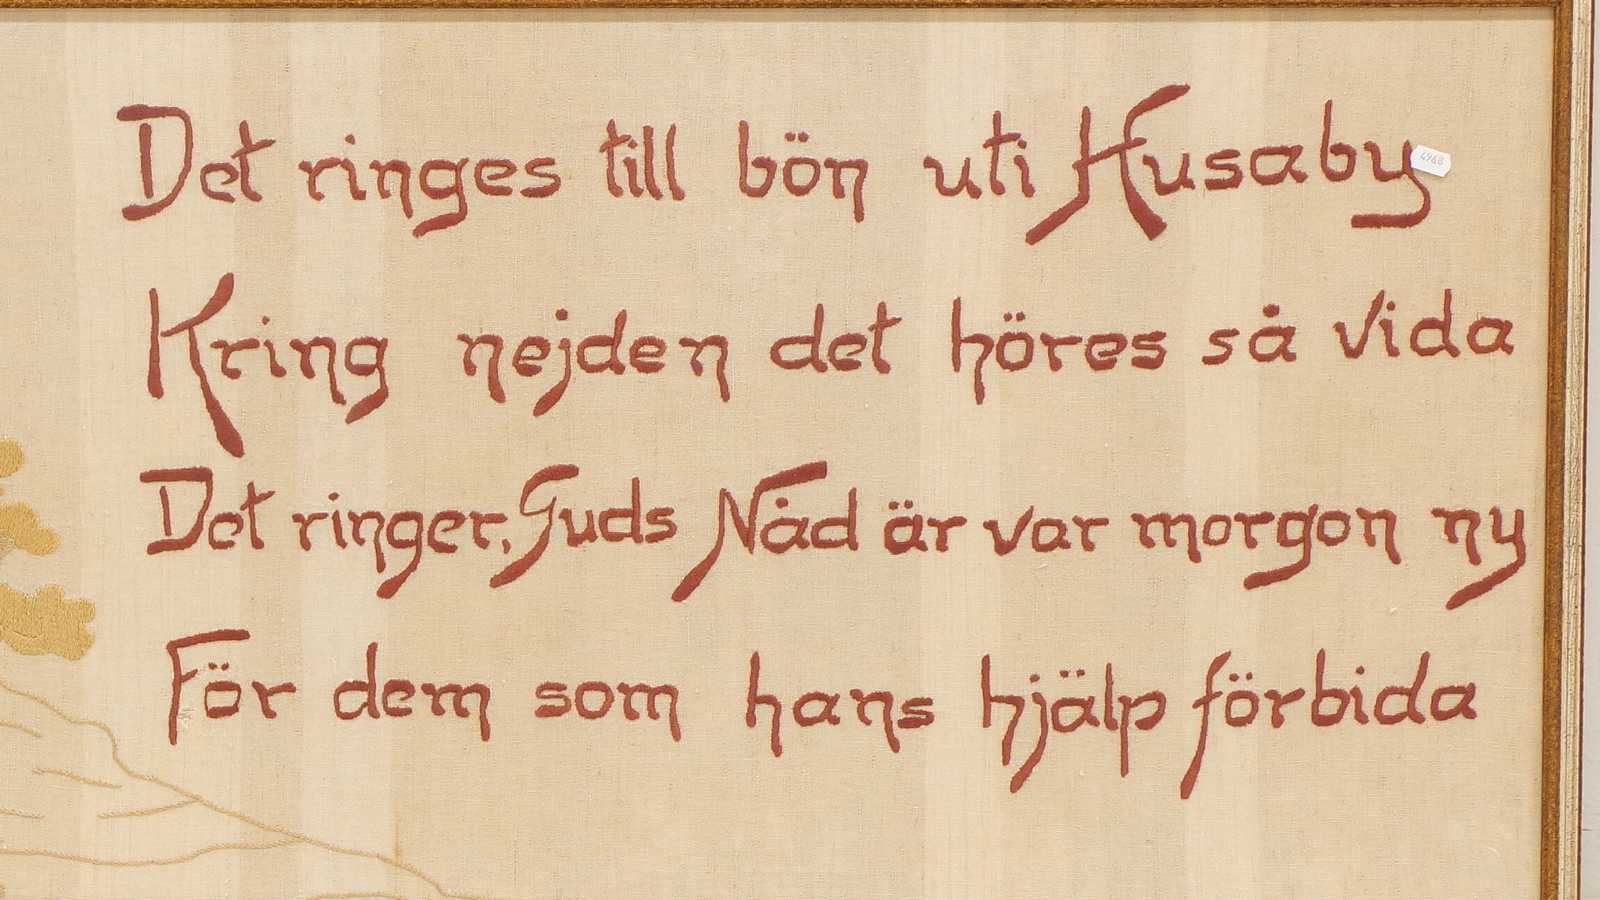 Det ringes till bön uti Husaby
4968
Kring nejden det höres så vida
Det ringer, Guds Nåd är var morgon ny
För dem som hans hjälp förbida